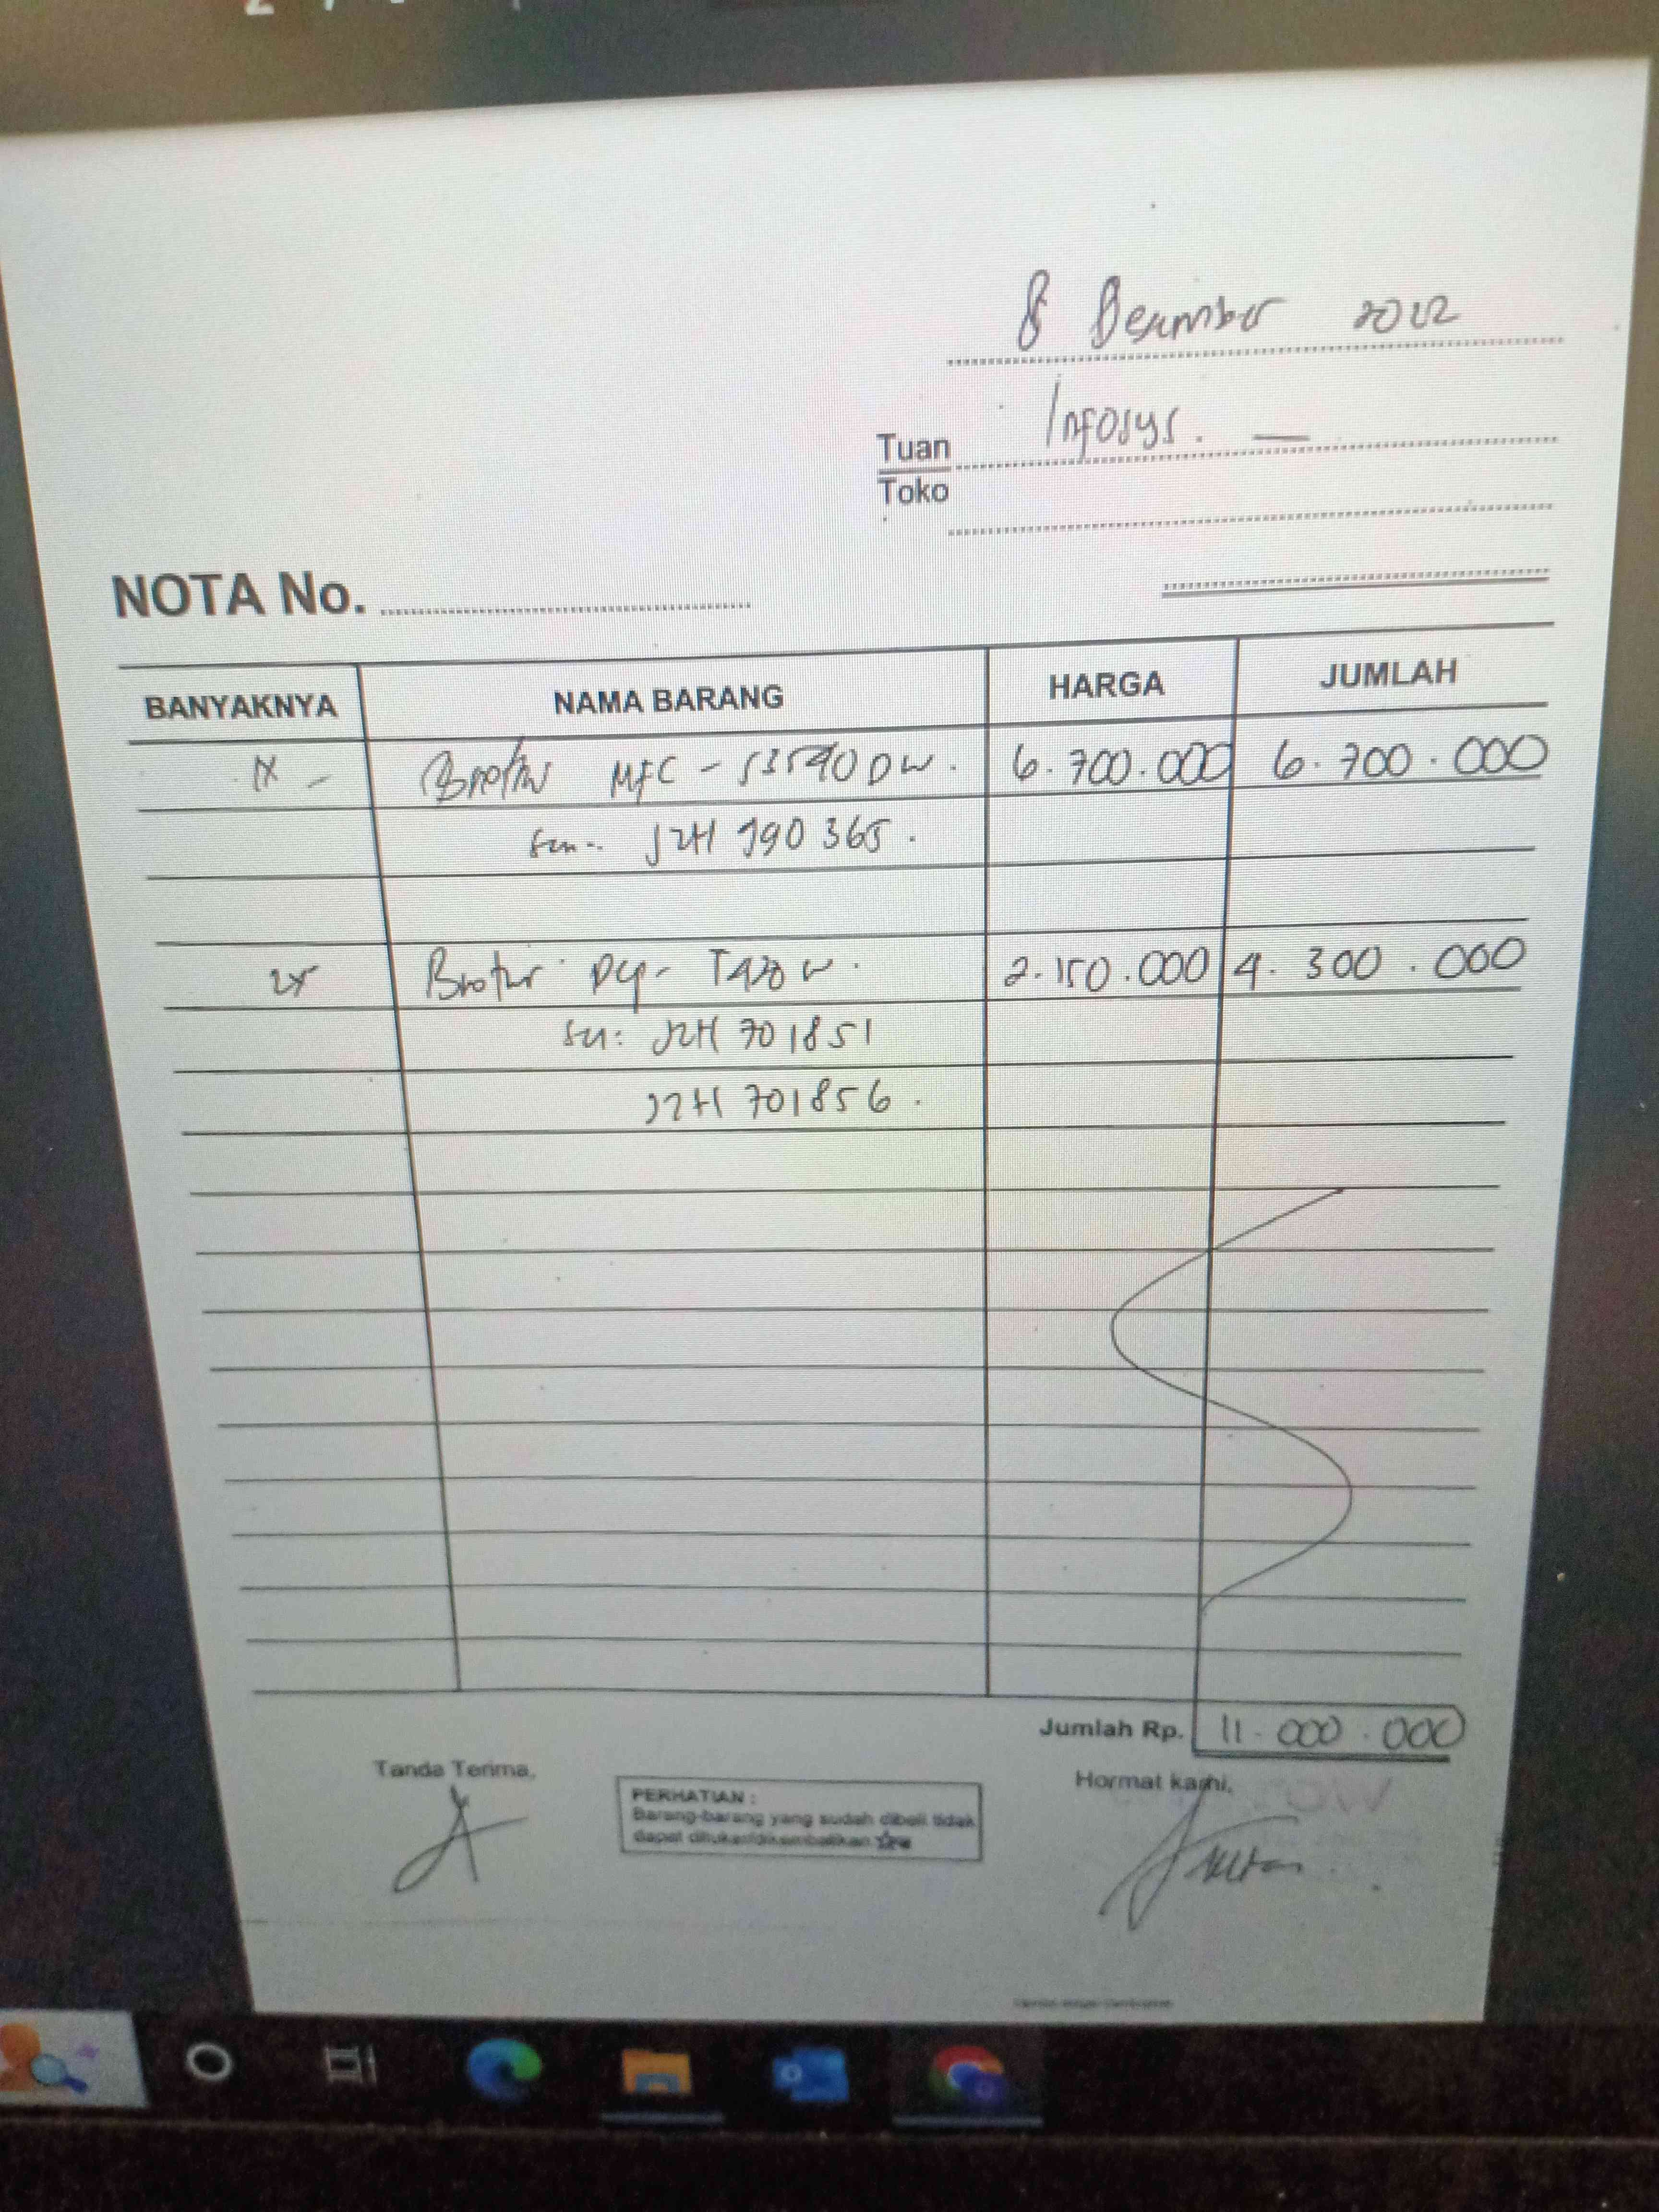 8 Desember 2022
Tuan Infosys. —
Toko
NOTA No.
BANYAKNYA NAMA BARANG HARGA JUMLAH
1x - Brother MFC - J3540DW. 6.700.000 6.700.000
J2H 190365.
2x Brother DCP- T420W. 2.150.000 4.300.000
sn: J2H 701851
J2H 701856.
Jumlah Rp. 11.000.000
Tanda Terima,
Hormat kami,
PERHATIAN :
Barang-barang yang sudah dibeli tidak
dapat ditukar/dikembalikan